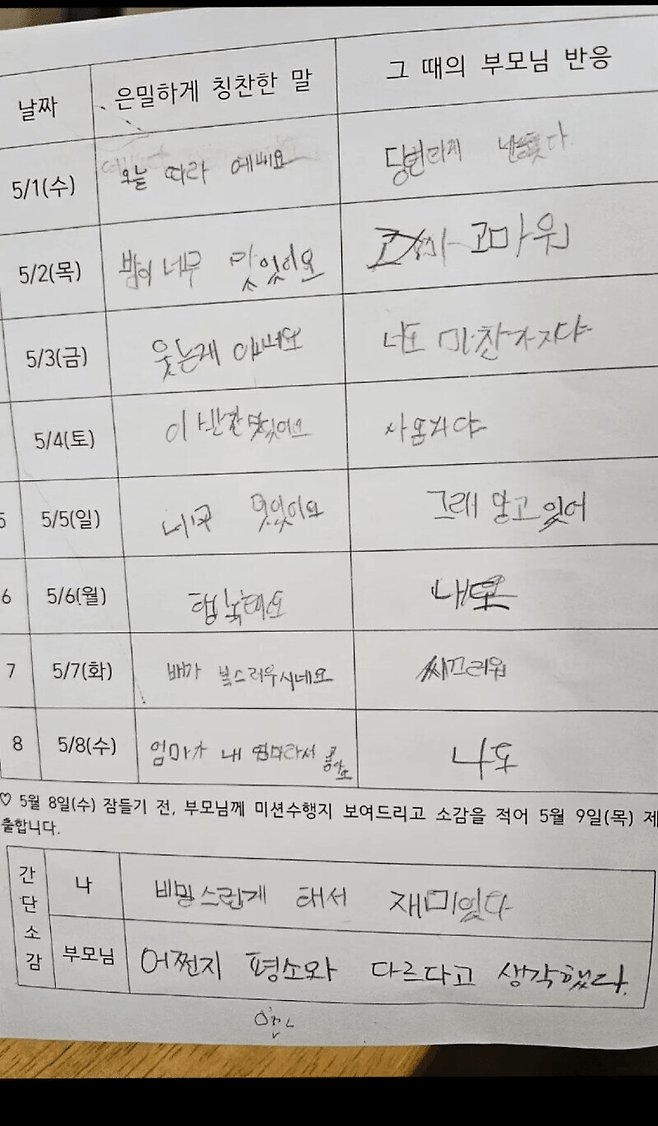 날짜 은밀하게 칭찬한 말 그 때의 부모님 반응
5/1(수) 오늘 따라 예뻐요 당연하지
5/2(목) 밥이 너무 맛있어요 고마워
5/3(금) 웃는게 이뻐요 너도 마찬가지야
5/4(토) 이 반찬 맛있어요
5 5/5(일) 맛있어요 그래 알고 있어
6 5/6(월) 내도
7 5/7(화) 배가 복스러우시네요 씨끄러워
8 5/8(수) 엄마가 내 엄마라서 좋아요 나도
♡ 5월 8일(수) 잠들기 전, 부모님께 미션수행지 보여드리고 소감을 적어 5월 9일(목) 제
출합니다.
간단소감
나 비밀스럽게 해서 재미있다
부모님 어쩐지 평소와 다르다고 생각했다.